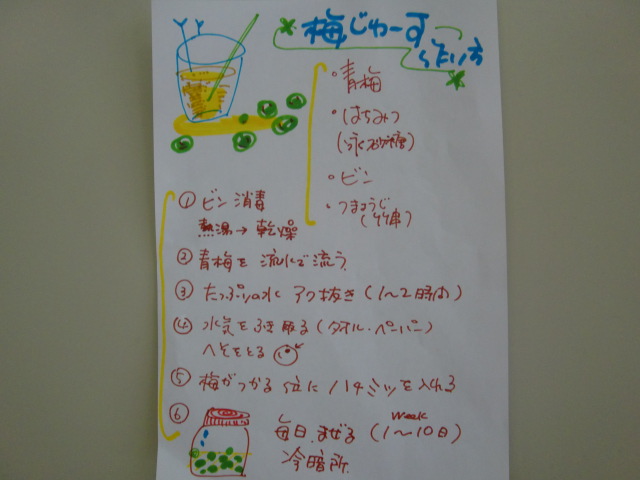 梅じゅーす
・青梅
・はちみつ
(氷砂糖)
・ビン
・つまようじ
(竹串)
① ビン消毒
熱湯→乾燥
② 青梅を流水で流う
③ たっぷりの水 アク抜き(1〜2時間)
④ 水気をふき取る(タオル・ペーパー)
へそをとる
⑤ 梅がつかる位にハチミツを入れる
⑥ 毎日まぜる(1〜10日)
week
冷暗所